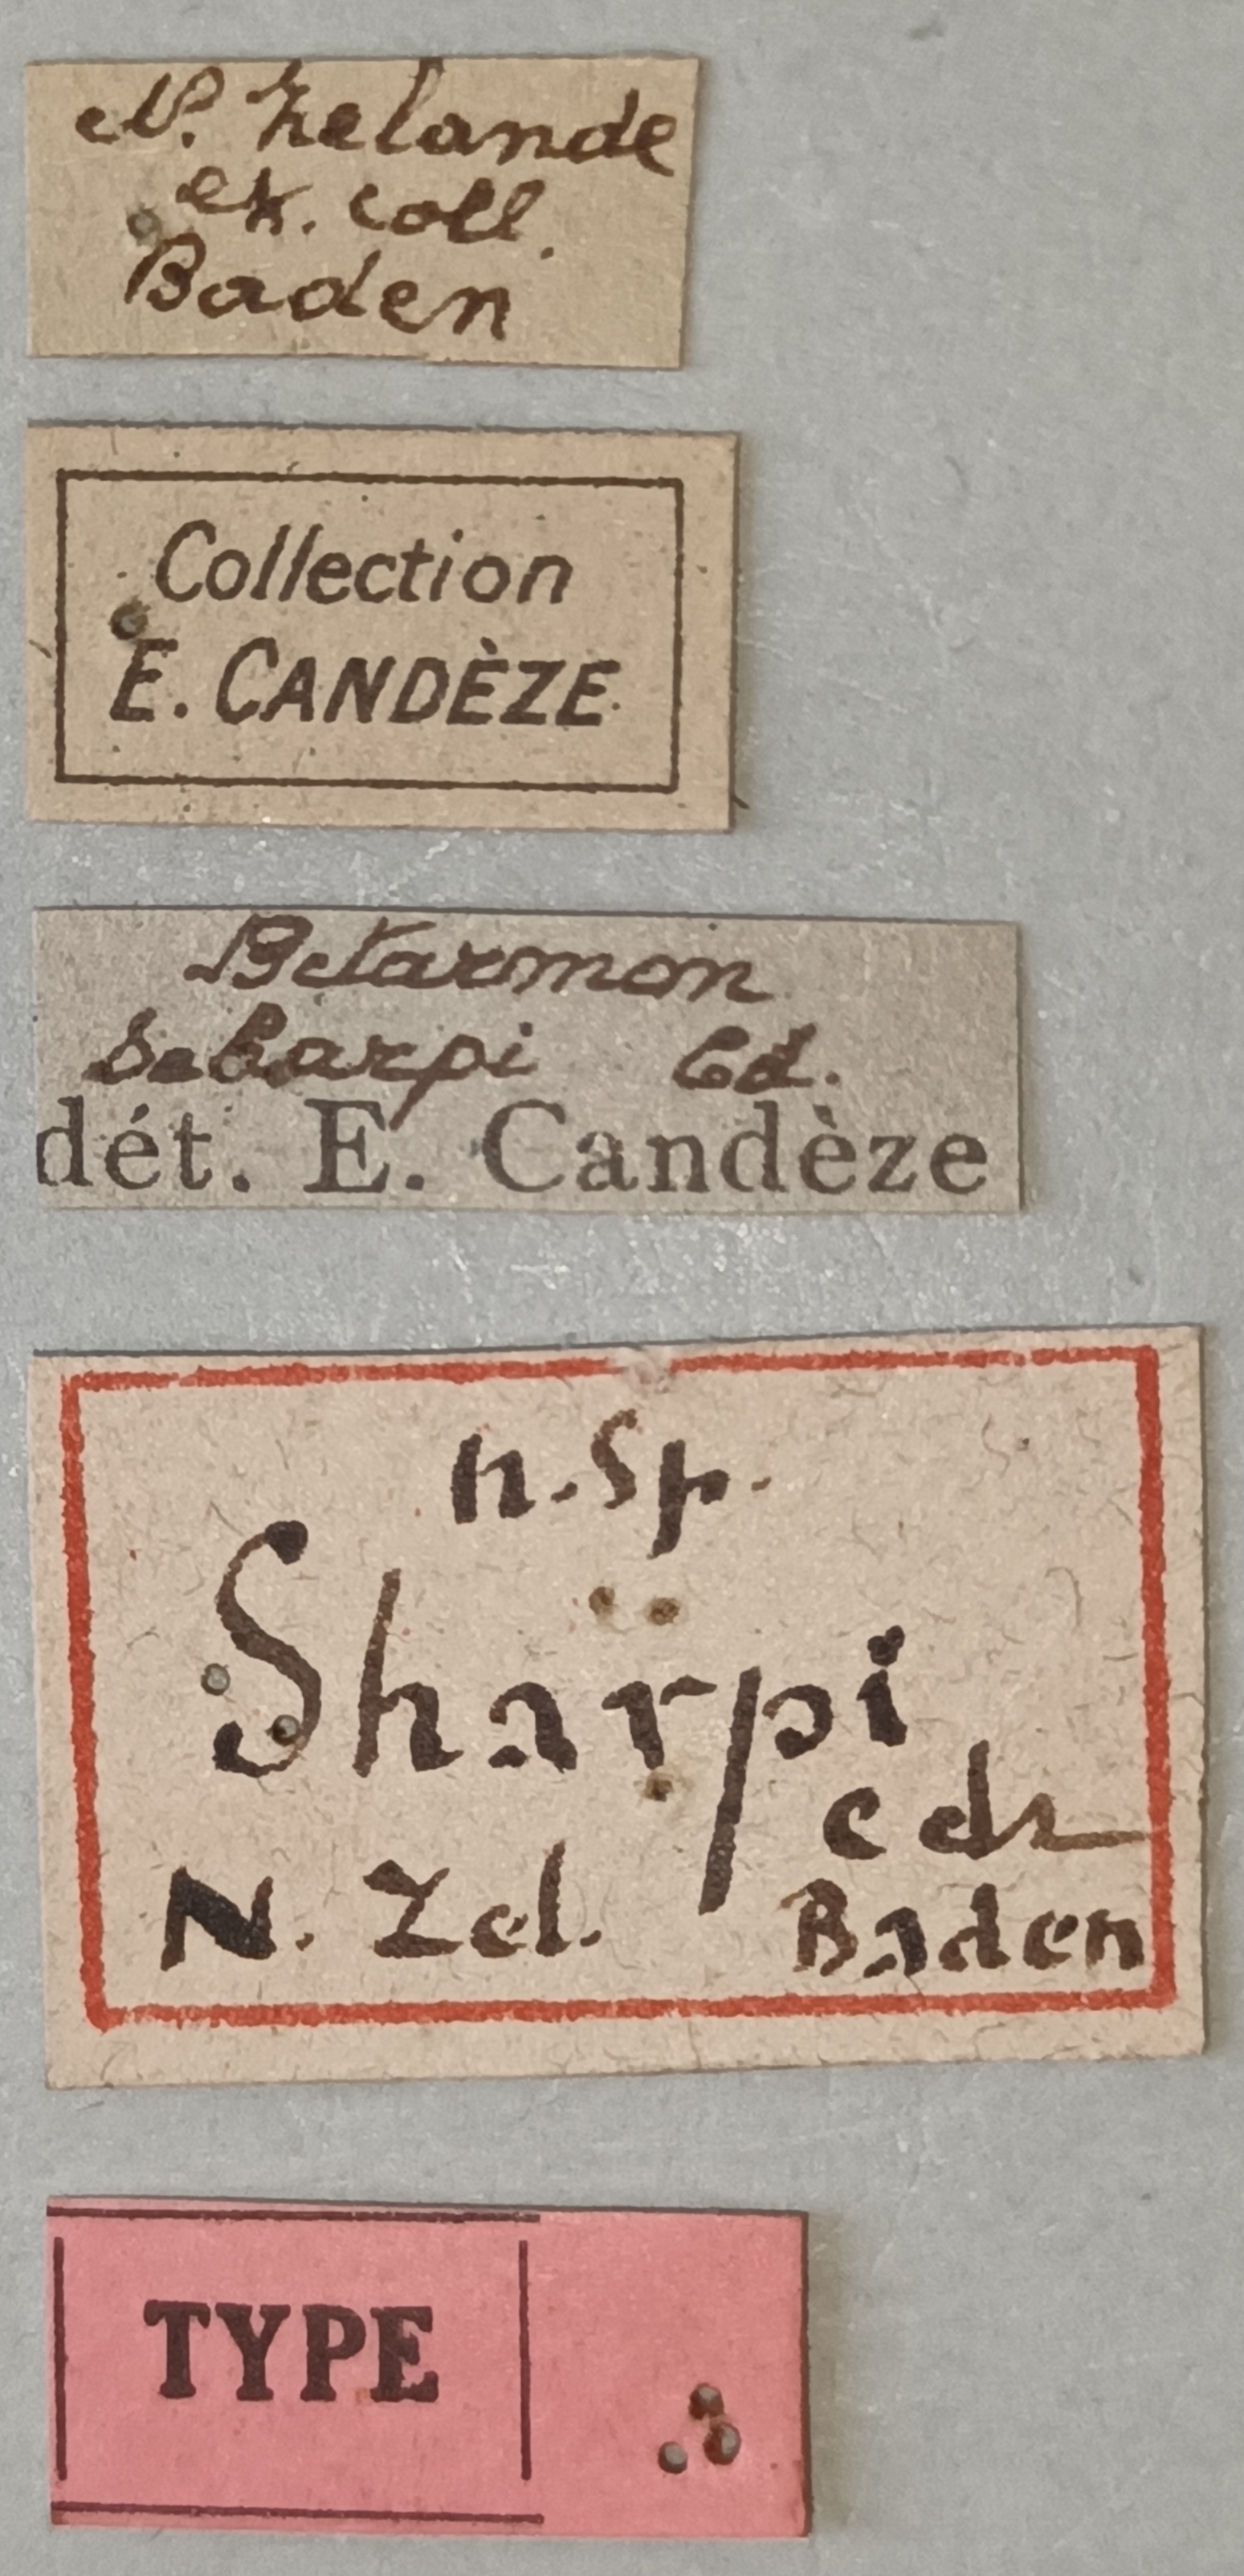 N. Zelande
ex. coll.
Baden
Collection
E. CANDÈZE
Betarmon
Scharpi Cd.
dét. E. Candèze
n. sp.
Sharpi
cdz
N. Zel. Baden
TYPE